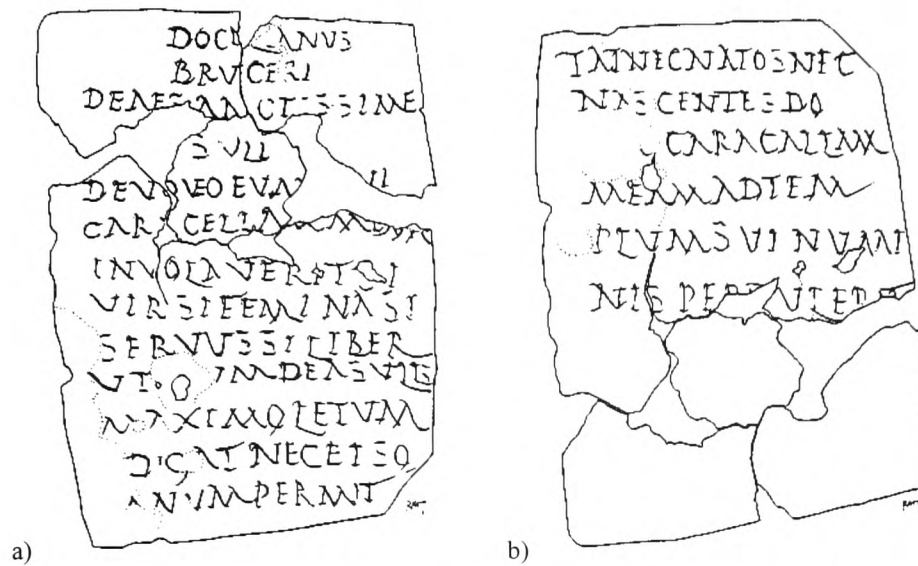 DOCILIANVS
BRVCERI
DEAE SANCTISSIME
SVLI
DEVOVEO EVM
CARACELLAM
INVOLAVERIT SI
VIR SI FEMINA SI
SERVVS SI LIBER
VT VM DEA SVLIS
MAXIMO LETVM
DIGAT NEC EI SO
NVM PERMIT
RSOT
a)
TAT NEC NATOS NEC
NASCENTES DO
CARACALLAM
MEAM AD TEM
PLVM SVI NVMI
NIS PERT
b)